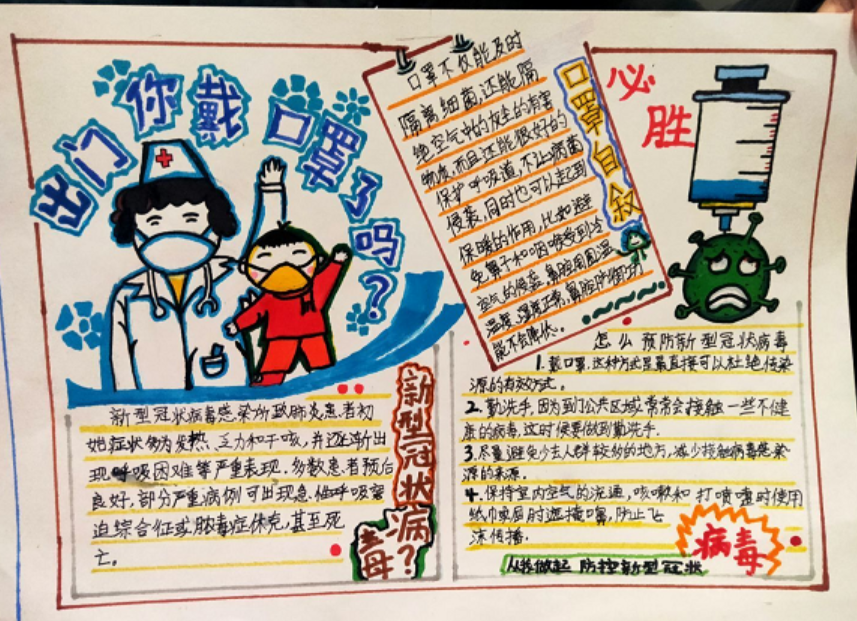 出门你戴口罩了吗?
口罩不仅能及时
隔离细菌,还能隔
绝空气中的灰尘的有害
物质,而且还能很好的
保护呼吸道,不让病菌
侵袭,同时也可以起到
保暖的作用,比如避
免鼻子和咽喉受到冷
空气的侵袭,鼻腔周围温
温度、湿度正常,鼻腔防御功
能不会降低。
口罩自叙
必胜
新型冠状病毒感染所致肺炎患者初
始症状多为发热、乏力和干咳,并逐渐出
现呼吸困难等严重表现。多数患者预后
良好,部分严重病例可出现急性呼吸窘
迫综合征或脓毒症休克,甚至死
亡。
新型冠状病毒?
怎么预防新型冠状病毒
1.戴口罩,这种方式是最直接可以杜绝传染
源的有效方式。
2.勤洗手,因为到了公共区域,常常会接触一些不健
康的病毒,这时候要做到勤洗手。
3.尽量避免少去人群较多的地方,减少接触病毒感染
源的来源。
4.保持室内空气的流通,咳嗽和打喷嚏时使用
纸巾或肩肘遮掩嘴,防止飞
沫传播.
病毒
从我做起 防控新型冠状